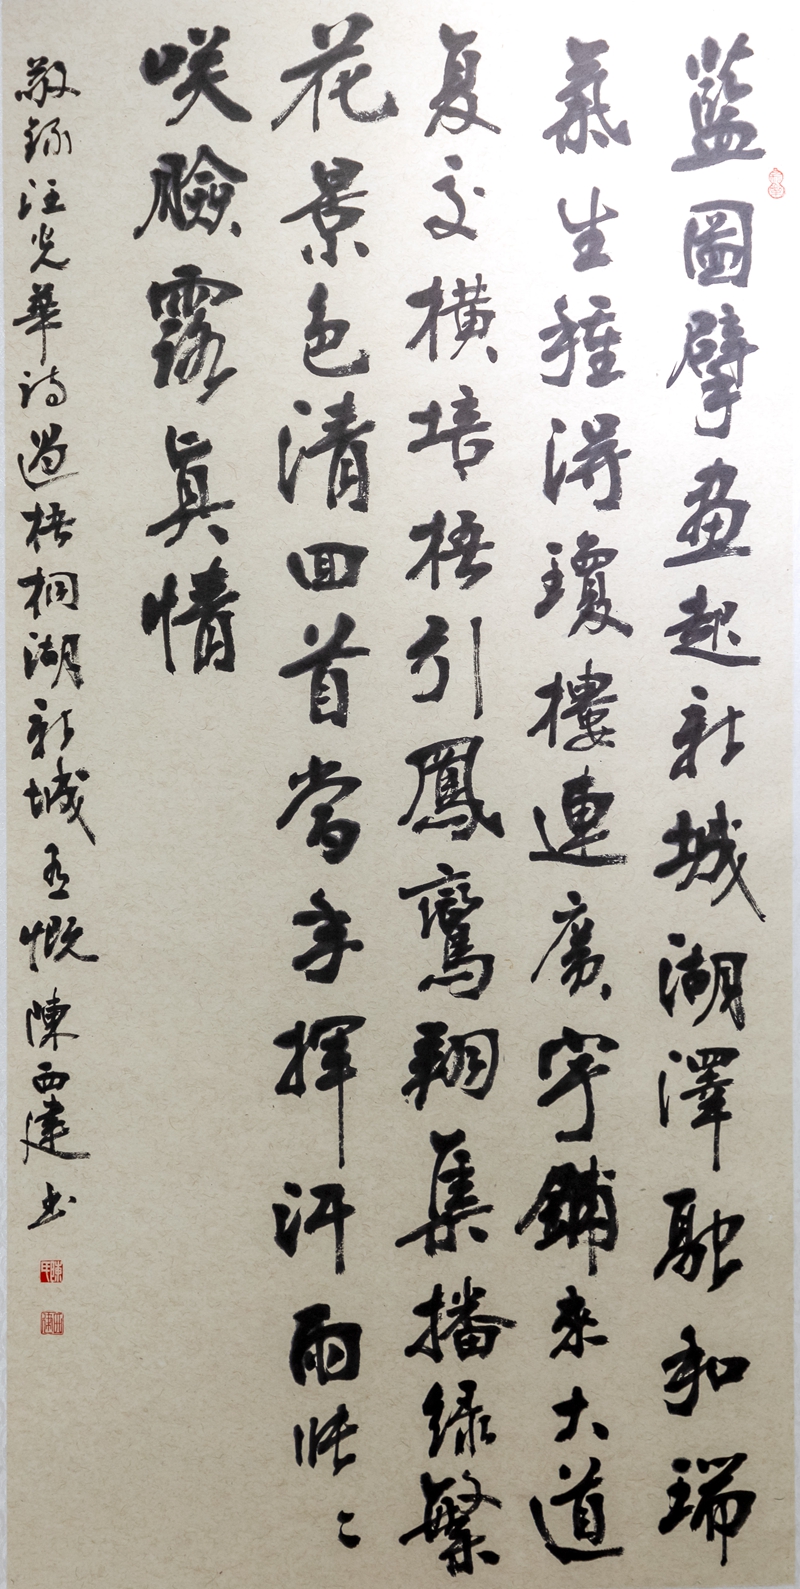 藍圖擘畫起新城湖澤融和瑞
氣生種得瓊樓連廣宇鋪來大道
复交橫培梧引鳳鸞翔集播绿繁
花景色清回首當年揮汗雨张〻
咲臉露真情
敬錄汪光華诗過梧桐湖新城有慨陳西建书